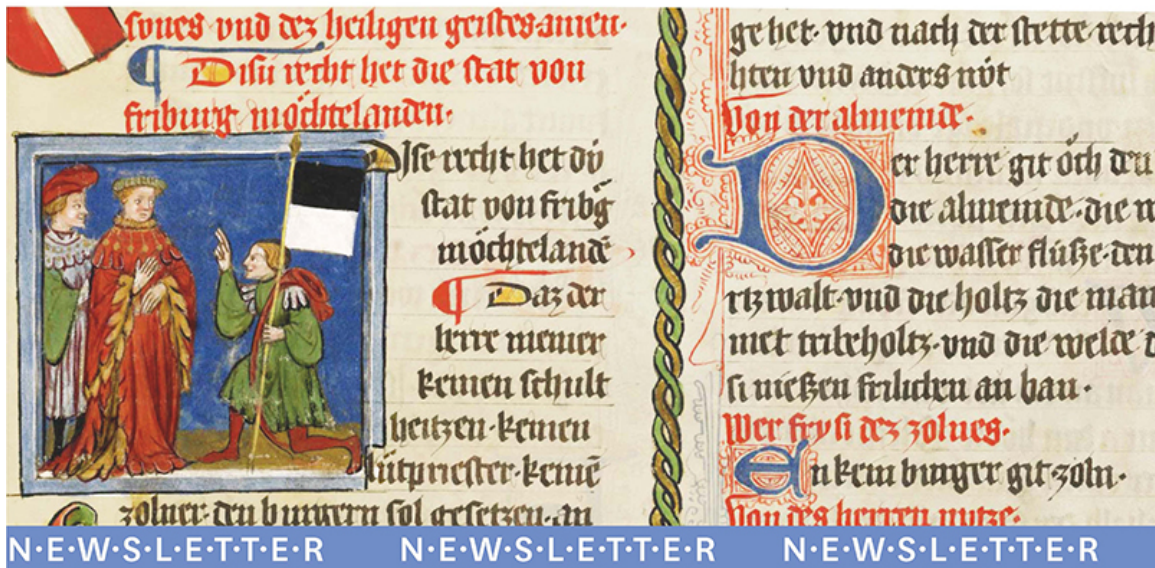 sones vnd dez heiligen geistes amen·
Disu recht het die stat von
friburg möchtelanden·
Dise recht het dü
stat von fribg
möchtelande
Daz der
herre niemer
keinen schult
heitzen keinen
lütpriester keinē
zolner den burgern sol gesetzen an
ge het· vnd nach der stette rech
hten vnd anders nüt
Von der almeinde·
Der herre git öch den
die almeinde· die w
die wasser flüsze den
rtzwalt vnd die holtz die man
met tribeholtz· vnd die welde d
si nieszen frilichen an ban·
Wer fry si dez zolnes·
Enkein burger git zoln·
Von des herren nutze·
N·E·W·S·L·E·T·T·E·R N·E·W·S·L·E·T·T·E·R N·E·W·S·L·E·T·T·E·R